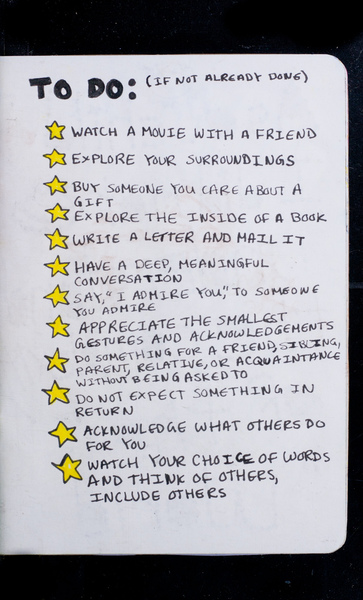 TO DO: (IF NOT ALREADY DONE)
WATCH A MOVIE WITH A FRIEND
EXPLORE YOUR SURROUNDINGS
BUY SOMEONE YOU CARE ABOUT A
GIFT
EXPLORE THE INSIDE OF A BOOK
WRITE A LETTER AND MAIL IT
HAVE A DEEP, MEANINGFUL
CONVERSATION
SAY, "I ADMIRE YOU," TO SOMEONE
YOU ADMIRE
APPRECIATE THE SMALLEST
GESTURES AND ACKNOWLEDGEMENTS
DO SOMETHING FOR A FRIEND, SIBLING,
PARENT, RELATIVE, OR ACQUAINTANCE
WITHOUT BEING ASKED TO
DO NOT EXPECT SOMETHING IN
RETURN
ACKNOWLEDGE WHAT OTHERS DO
FOR YOU
WATCH YOUR CHOICE OF WORDS
AND THINK OF OTHERS,
INCLUDE OTHERS